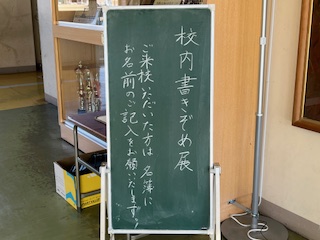 校内書きぞめ展
ご来校いただいた方は名簿に
お名前のご記入をお願いします。